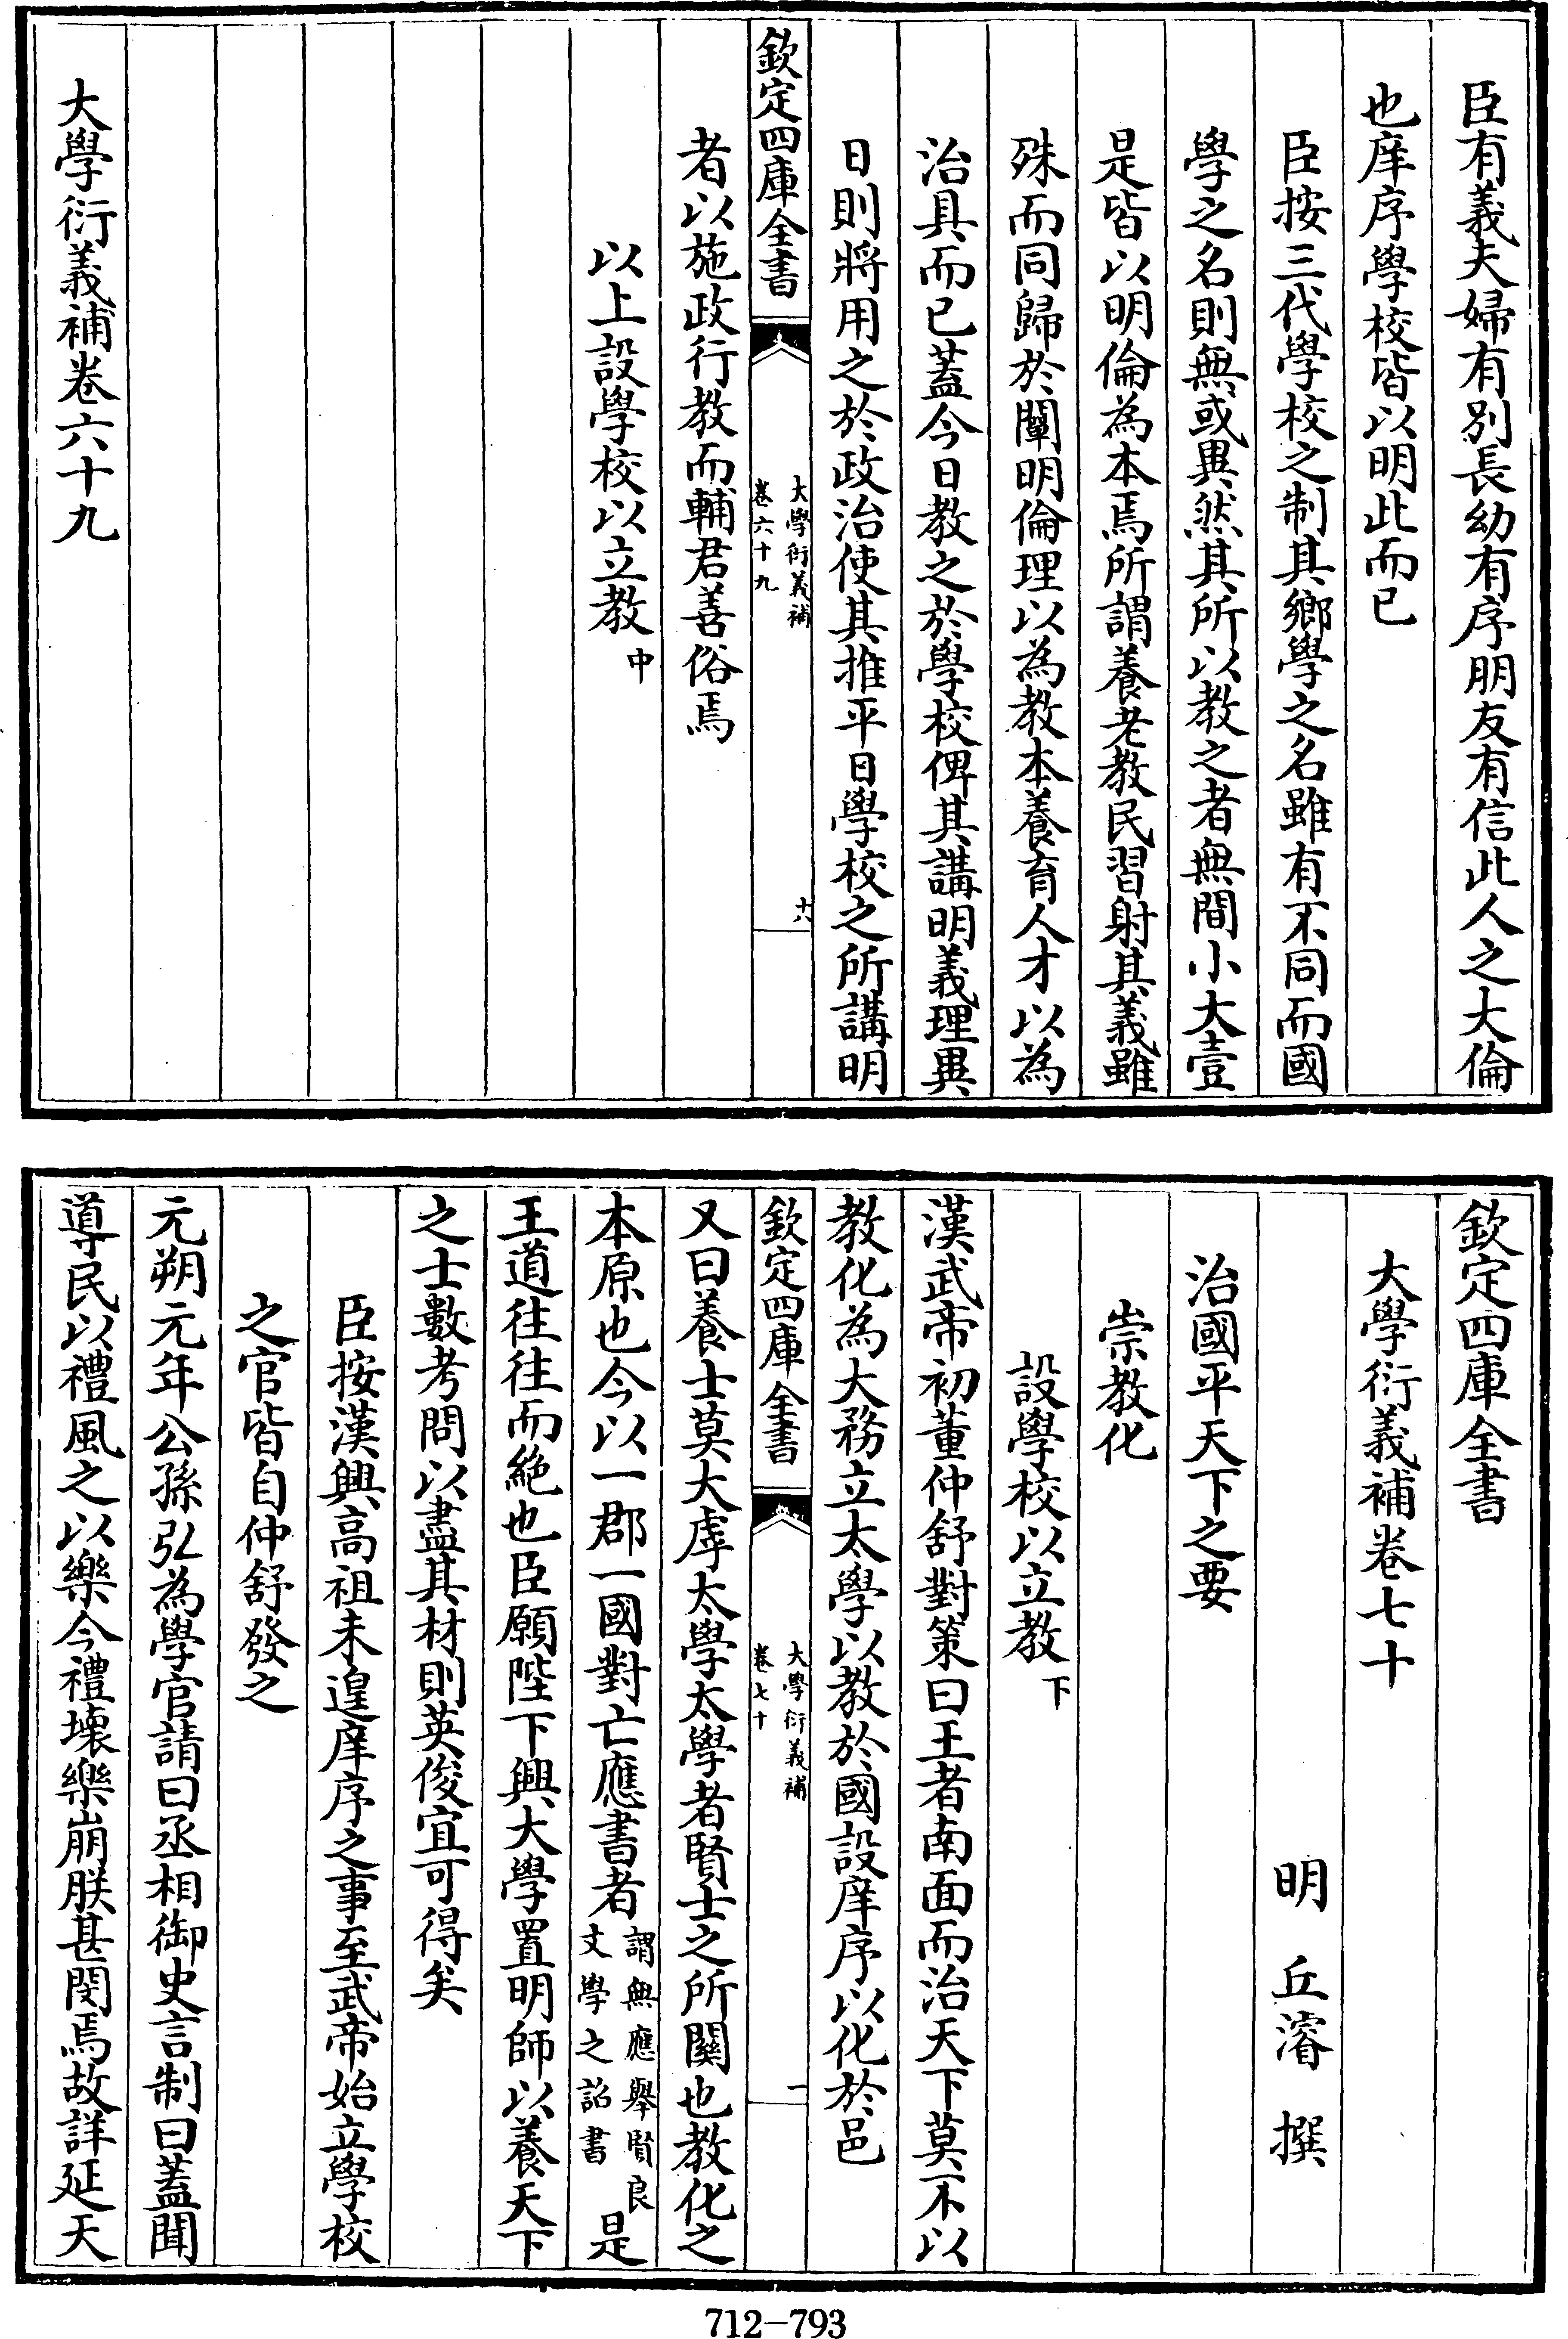 臣有義夫婦有别長幼有序朋友有信此人之大倫
也庠序學校皆以明此而已
臣按三代學校之制其鄉學之名雖有不同而國
學之名則無或異然其所以教之者無間小大壹
是皆以明倫為本焉所謂養老教民習射其義雖
殊而同歸於闡明倫理以為教本養育人才以為
治具而已蓋今日教之於學校俾其講明義理異
日則將用之於政治使其推平日學校之所講明
欽定四庫全書
大學衍義補
卷六十九
十六
者以施政行教而輔君善俗焉
以上設學校以立教中
大學衍義補卷六十九
欽定四庫全書
大學衍義補卷七十
明 丘濬 撰
治國平天下之要
崇教化
設學校以立教下
漢武帝初董仲舒對策曰王者南面而治天下莫不以
教化為大務立太學以教於國設庠序以化於邑
欽定四庫全書
大學衍義補
卷七十
一
又曰養士莫大虖太學太學者賢士之所關也教化之
本原也今以一郡一國對亡應書者謂無應舉賢良文學之詔書是
王道往往而絶也臣願陛下興大學置明師以養天下
之士數考問以盡其材則英俊宜可得矣
臣按漢興高祖未遑庠序之事至武帝始立學校
之官皆自仲舒發之
元朔元年公孫弘為學官請曰丞相御史言制曰蓋聞
導民以禮風之以樂今禮壞樂崩朕甚閔焉故詳延天
712-793